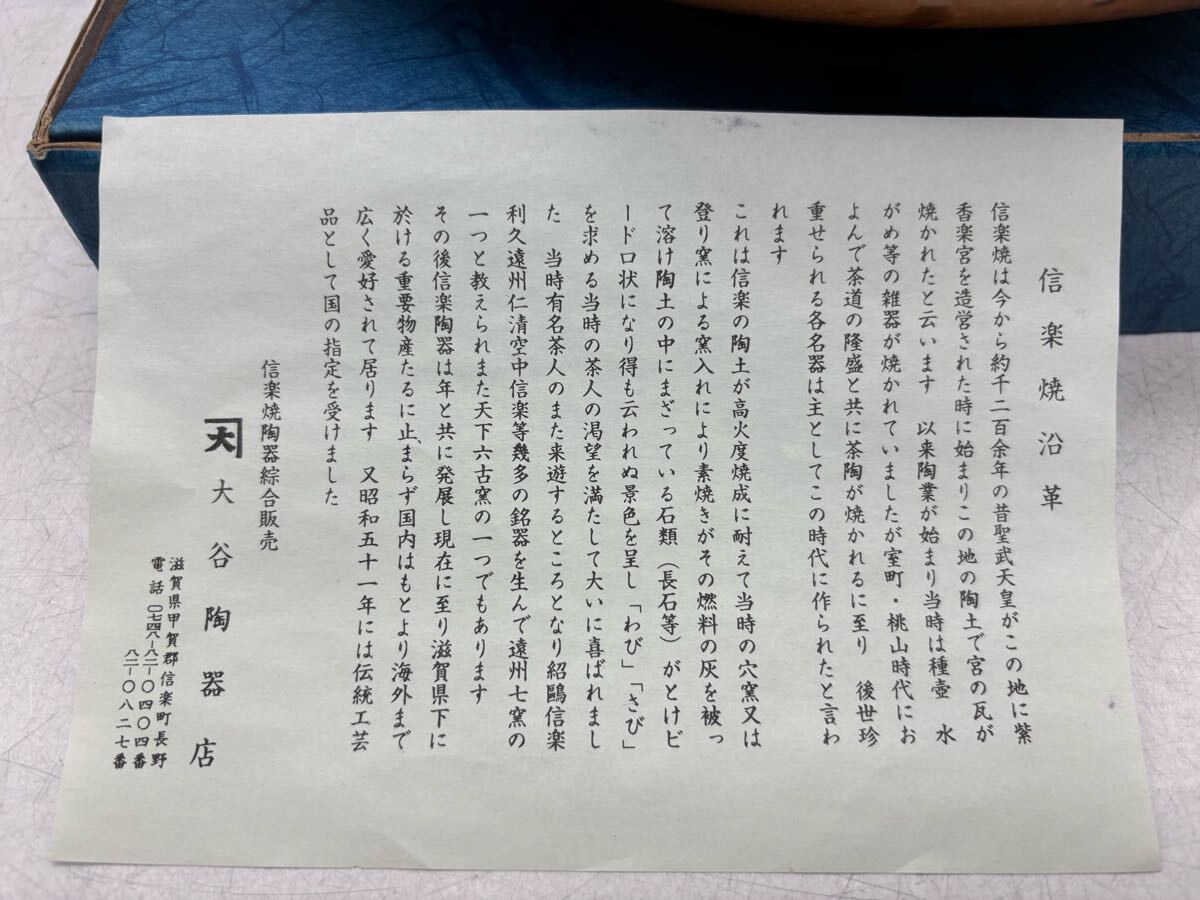 信楽焼沿革
信楽焼は今から約千二百余年の昔聖武天皇がこの地に紫
香楽宮を造営された時に始まりこの地の陶土で宮の瓦が
焼かれたと云います　以来陶業が始まり当時は種壺　水
がめ等の雑器が焼かれていましたが室町・桃山時代にお
よんで茶道の隆盛と共に茶陶が焼かれるに至り　後世珍
重せられる各名器は主としてこの時代に作られたと言わ
れます
これは信楽の陶土が高火度焼成に耐えて当時の穴窯又は
登り窯による窯入れにより素焼きがその燃料の灰を被っ
て溶け陶土の中にまざっている石類（長石等）がとけビ
ードロ状になり得も云われぬ景色を呈し「わび」「さび」
を求める当時の茶人の渇望を満たして大いに喜ばれまし
た　当時有名茶人のまた来遊するところとなり紹鷗信楽
利久遠州仁清空中信楽等幾多の銘器を生んで遠州七窯の
一つと教えられまた天下六古窯の一つでもあります
その後信楽陶器は年と共に発展し現在に至り滋賀県下に
於ける重要物産たるに止、まらず国内はもとより海外まで
広く愛好されて居ります　又昭和五十一年には伝統工芸
品として国の指定を受けました
信楽焼陶器綜合販売
大 大谷陶器店
滋賀県甲賀郡信楽町長野
電話〇七四八-八二-〇四〇四番
八二-〇八二七番